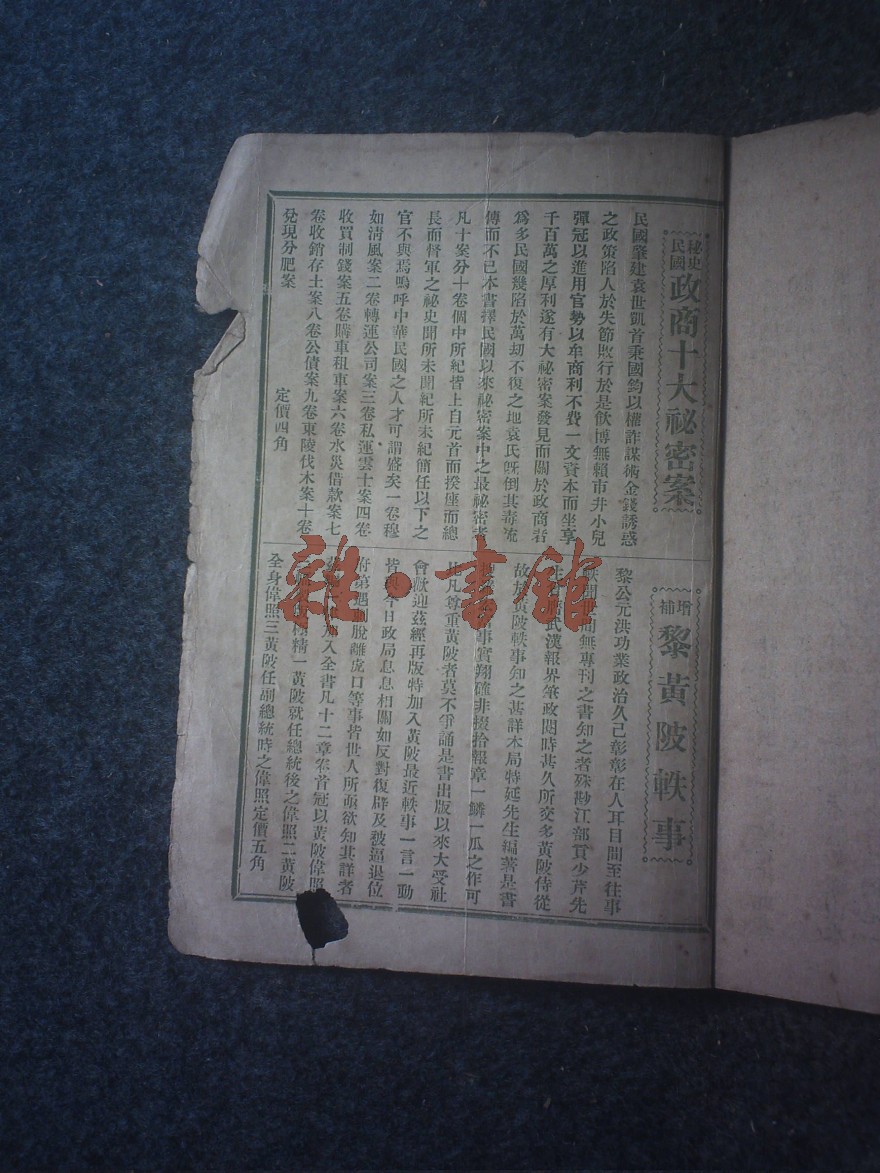 民國祕史
政商十大祕密案
民國肇建袁世凱首秉國鈞以權詐謀術金錢誘惑
之政策陷人於失節敗行於是飲博無賴市井小兒
彈冠以進用官勢以牟商利不費一文資本而坐享
千百萬之厚利遂有大祕密案發見而關於政商者
爲多民國幾陷於萬劫不復之地袁氏旣倒其毒流
傳而不已本書擇民國以來祕密案中之最祕密者
凡十案分十卷個中所紀皆上自元首而揆座而總
長而督軍之祕史聞所未聞紀所未紀簡任以下之
官不與焉嗚呼中華民國之人才可謂盛矣一卷穆
如淸風案二卷轉運公司案三卷私運雲土案四卷
收買制錢案五卷購車租車案六卷水災借款案七
卷收銷存土案八卷公債案九卷東陵伐木案十卷
兌現分肥案
定價四角
增補
黎黃陂軼事
黎公元洪功業政治久已彰彰在人耳目間至往事
軼聞世間無專刊之書知之者殊尠江都貢少芹先
武漢報界筆政閱時甚久所交多黃陂侍從
故於黃陂軼事知之甚詳本局特延先生編著是書
事實翔確非掇拾報章一鱗一爪之作可
比凡尊重黃陂者莫不爭誦是書出版以來大受社
會歡迎茲經再版特加入黃陂最近軼事一言一動
皆與今日政局息息相關如反對復辟及被逼退位
府第遇刺脫離虎口等事皆世人所亟欲知其詳者
加入全書凡十二章卷首冠以黃陂偉照
精一黃陂就任總統後之偉照二黃陂
全身偉照三黃陂任副總統時之偉照定價五角
雜·書館